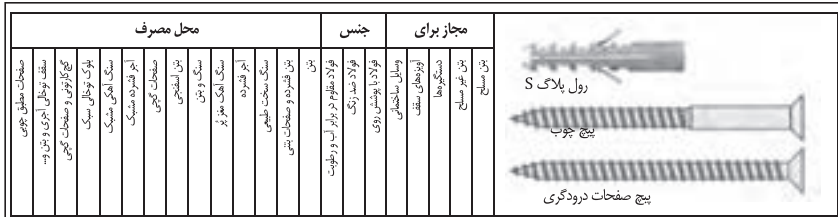 مجاز برای
جنس
محل مصرف
بتن مسلح
بتن غیر مسلح
دستگیره‌ها
آویزه‌های سقف
وسایل ساختمانی
فولاد با پوشش روی
فولاد ضد زنگ
فولاد مقاوم در برابر آب و رطوبت
بتن
بتن فشرده و صفحات بتنی
سنگ سخت طبیعی
آجر فشرده
سنگ آهک مغز پُر
سنگ و بتن
بتن اسفنجی
صفحات گچی
آجر فشرده مشبک
سنگ آهکی مشبک
بلوک توخالی سبک
گچ کارتونی و صفحات گچی
سقف توخالی آجری و بتن و...
صفحات مطبق چوبی
رول پلاگ S
پیچ چوب
پیچ صفحات درودگری